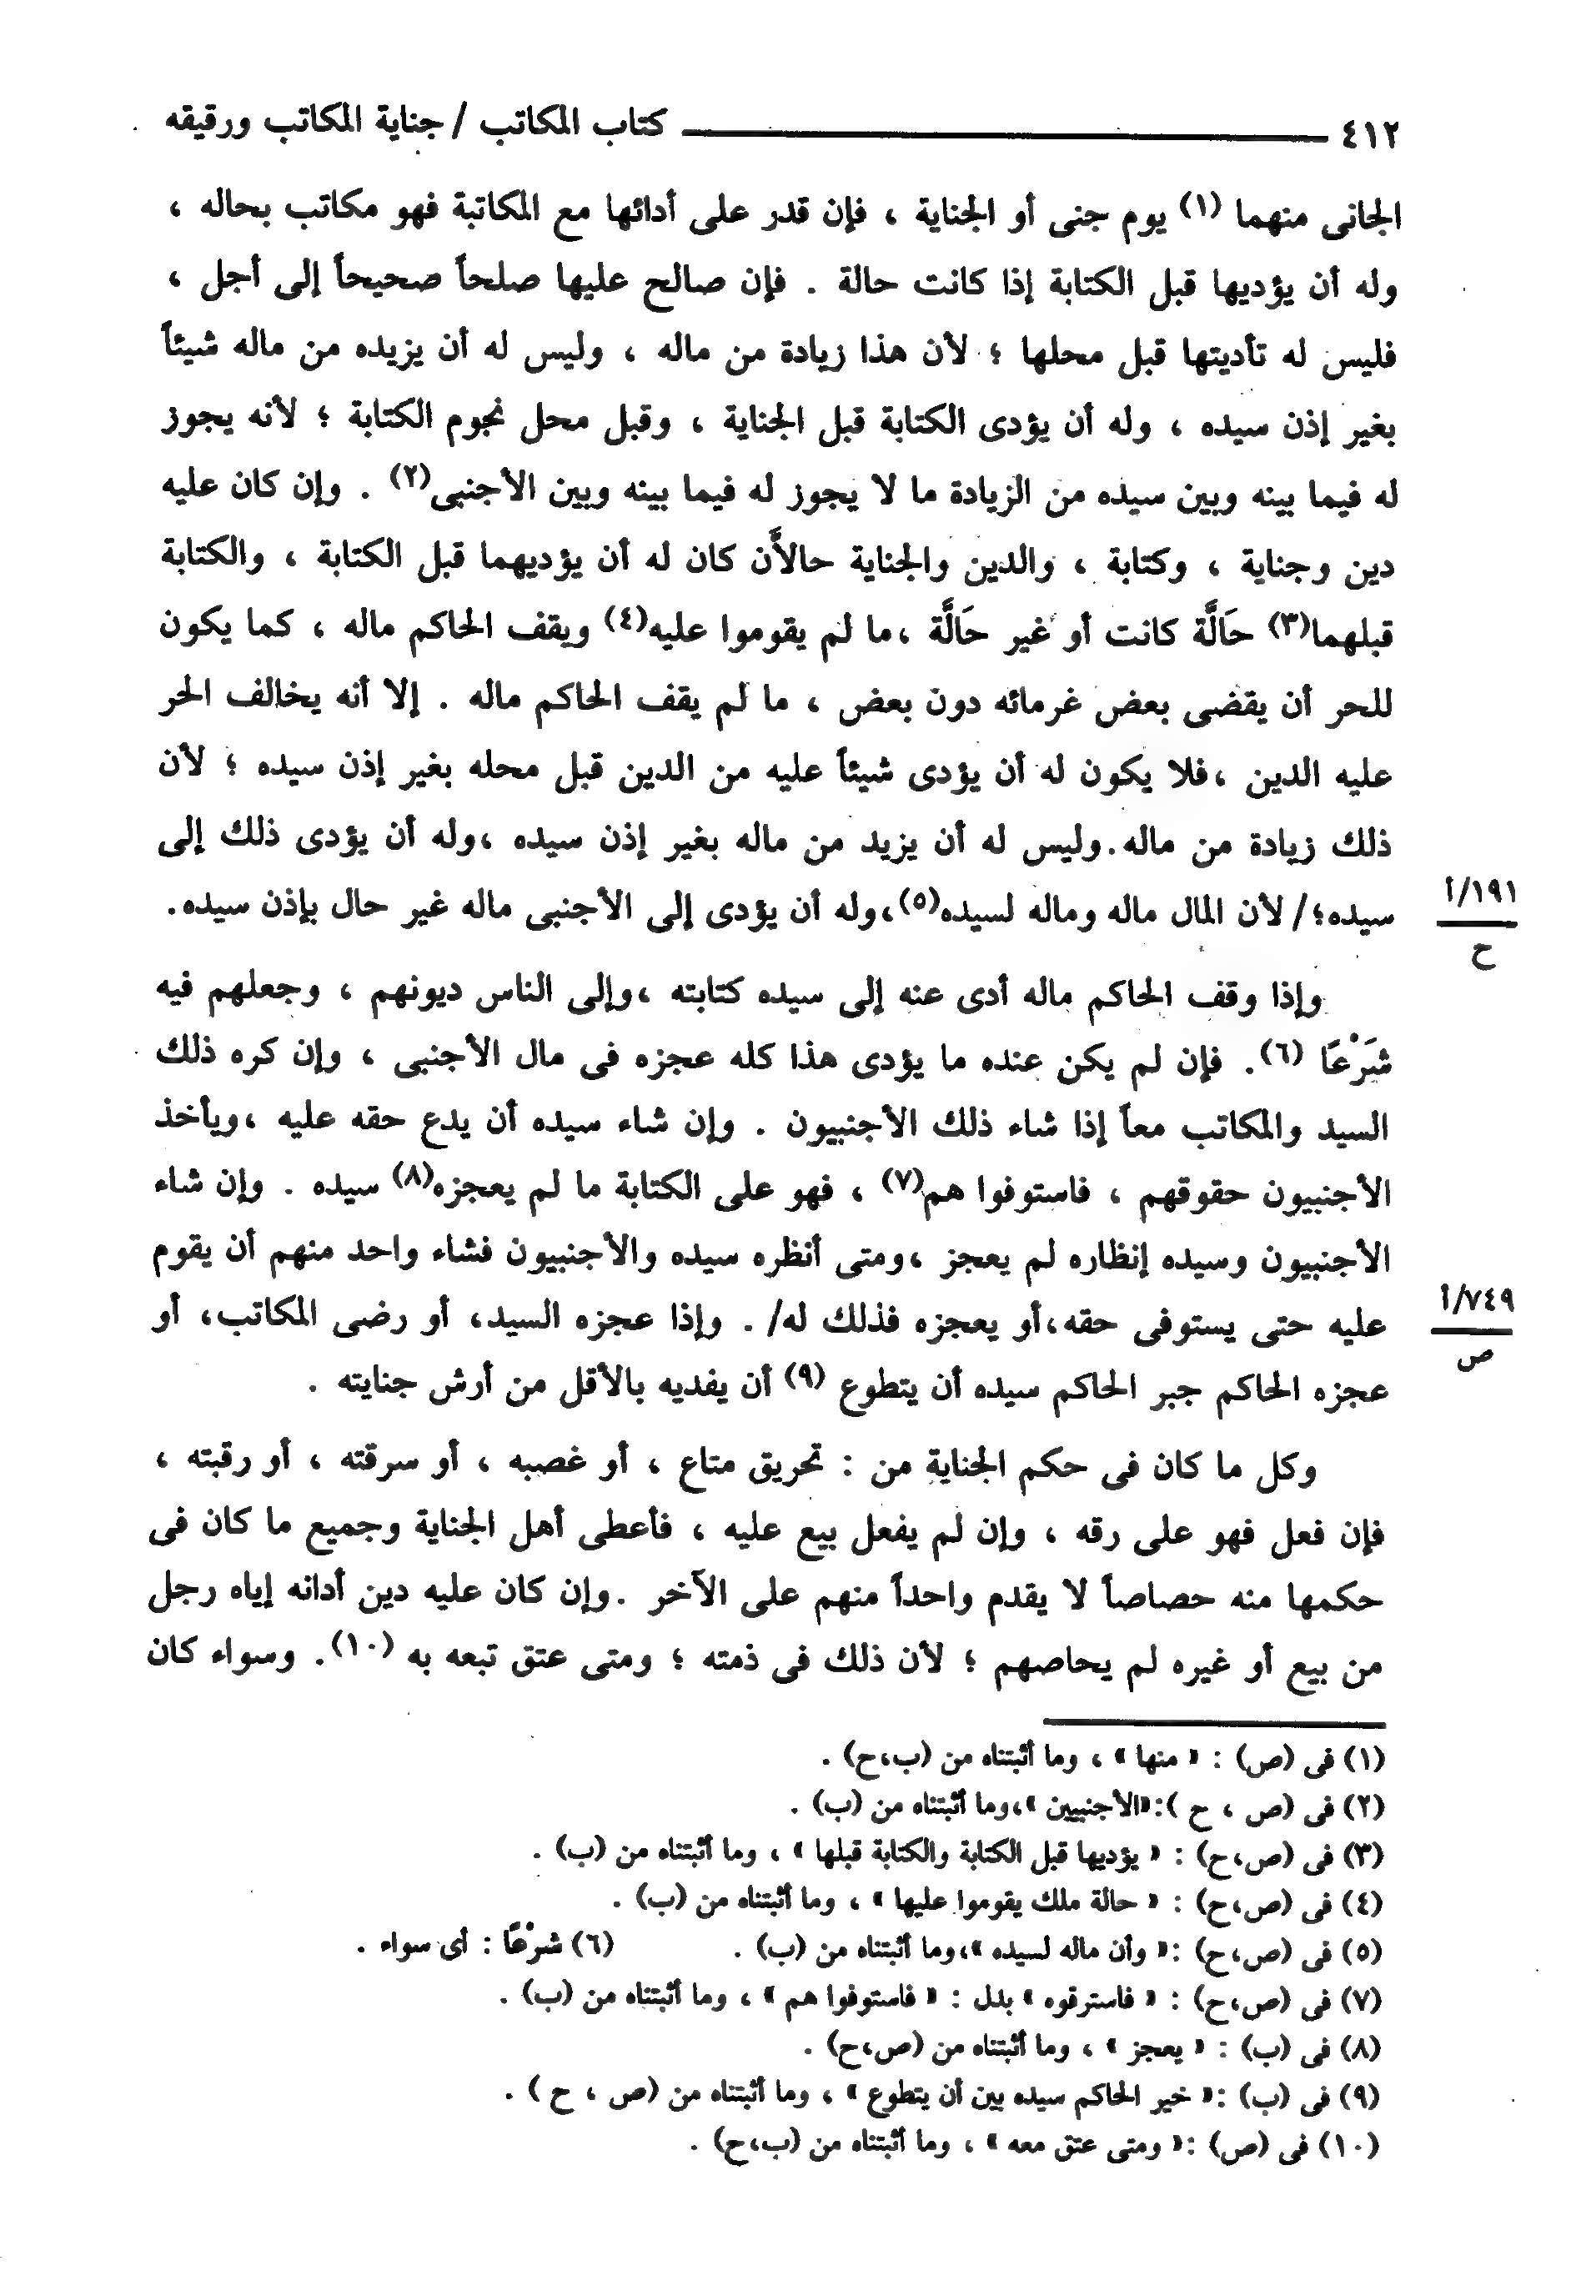 ٤١٢ ـــ كتاب المكاتب / جناية المكاتب ورقيقه
الجانى منهما (١) يوم جنى أو الجناية ، فإن قدر على أدائها مع المكاتبة فهو مكاتب بحاله ،
وله أن يؤديها قبل الكتابة إذا كانت حالة . فإن صالح عليها صلحاً صحيحاً إلى أجل ،
فليس له تأديتها قبل محلها ؛ لأن هذا زيادة من ماله ، وليس له أن يزيده من ماله شيئاً
بغير إذن سيده ، وله أن يؤدى الكتابة قبل الجناية ، وقبل محل نجوم الكتابة ؛ لأنه يجوز
له فيما بينه وبين سيده من الزيادة ما لا يجوز له فيما بينه وبين الأجنبى(٢) . وإن كان عليه
دين وجناية ، وكتابة ، والدين والجناية حالاَّن كان له أن يؤديهما قبل الكتابة ، والكتابة
قبلهما(٣) حَالَّة كانت أو غير حَالَّة ،ما لم يقوموا عليه(٤) ويقف الحاكم ماله ، كما يكون
للحر أن يقضى بعض غرمائه دون بعض ، ما لم يقف الحاكم ماله . إلا أنه يخالف الحر
عليه الدين ،فلا يكون له أن يؤدى شيئاً عليه من الدين قبل محله بغير إذن سيده ؛ لأن
ذلك زيادة من ماله.وليس له أن يزيد من ماله بغير إذن سيده ،وله أن يؤدى ذلك إلى
سيده؛/ لأن المال ماله وماله لسيده(٥)،وله أن يؤدى إلى الأجنبى ماله غير حال بإذن سيده.
١٩١/أ
ح
وإذا وقف الحاكم ماله أدى عنه إلى سيده كتابته ،وإلى الناس ديونهم ، وجعلهم فيه
شَرْعًا (٦). فإن لم يكن عنده ما يؤدى هذا كله عجزه فى مال الأجنبى ، وإن كره ذلك
السيد والمكاتب معاً إذا شاء ذلك الأجنبيون . وإن شاء سيده أن يدع حقه عليه ،ويأخذ
الأجنبيون حقوقهم ، فاستوفوا هم(٧) ، فهو على الكتابة ما لم يعجزه(٨) سيده . وإن شاء
الأجنبيون وسيده إنظاره لم يعجز ،ومتى أنظره سيده والأجنبيون فشاء واحد منهم أن يقوم
عليه حتى يستوفى حقه،أو يعجزه فذلك له/ . وإذا عجزه السيد، أو رضى المكاتب، أو
٧٤٩/أ
ص
عجزه الحاكم جبر الحاكم سيده أن يتطوع (٩) أن يفديه بالأقل من أرش جنايته .
وكل ما كان فى حكم الجناية من : تحريق متاع ، أو غصبه ، أو سرقته ، أو رقبته ،
فإن فعل فهو على رقه ، وإن لم يفعل بيع عليه ، فأعطى أهل الجناية وجميع ما كان فى
حكمها منه حصاصاً لا يقدم واحداً منهم على الآخر .وإن كان عليه دين أدانه إياه رجل
من بيع أو غيره لم يحاصهم ؛ لأن ذلك فى ذمته ؛ ومتى عتق تبعه به (١٠). وسواء كان
(١) فى (ص) : « منها » ، وما أثبتناه من (ب،ح) .
(٢) فى (ص ، ح ):«الأجنبيين »،وما أثبتناه من (ب) .
(٣) فى (ص،ح) : « يؤديها قبل الكتابة والكتابة قبلها » ، وما أثبتناه من (ب) .
(٤) فى (ص،ح) : « حالة ملك يقوموا عليها » ، وما أثبتناه من (ب) .
(٥) فى (ص،ح) :« وأن ماله لسيده »،وما أثبتناه من (ب) . (٦) شَرْعًا : أى سواء .
(٧) فى (ص،ح) : « فاسترقوه » بدل : « فاستوفوا هم » ، وما أثبتناه من (ب) .
(٨) فى (ب) : « يعجز » ، وما أثبتناه من (ص،ح) .
(٩) فى (ب) :« خير الحاكم سيده بين أن يتطوع » ، وما أثبتناه من (ص ، ح ) .
(١٠) فى (ص) :« ومتى عتق معه » ، وما أثبتناه من (ب،ح) .